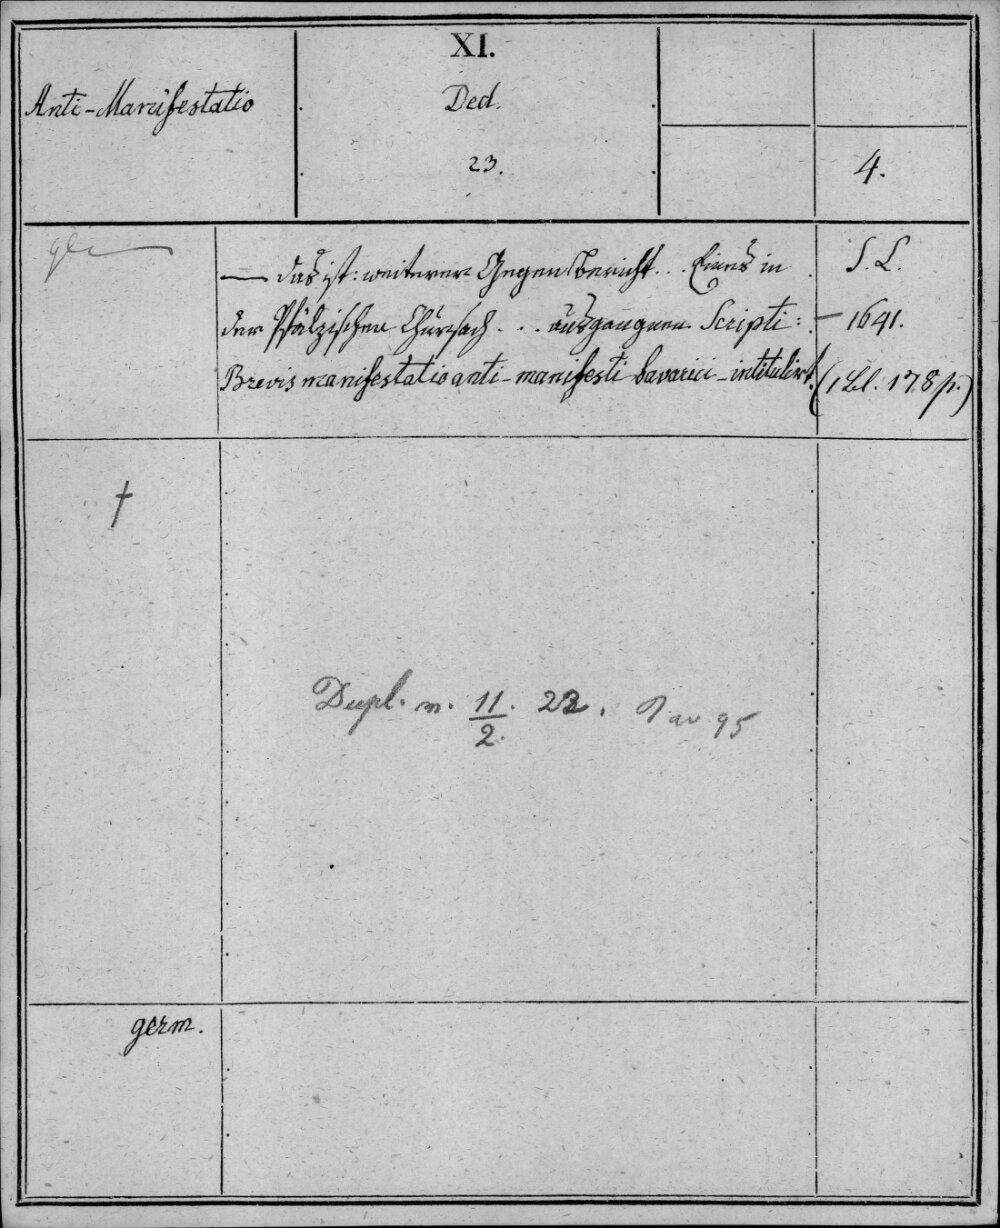 XI.
Anti-Manifestatio
Ded.
23.
4.
— das ist: weiterer Gegen Bericht... Eines in
S. L.
der Pfälzischen Chursach ... ausgangnen Scripti:
— 1641.
Brevis manifestatio anti-manifesti bavarici-intitulirt.
(1 Bl. 178 p.)
†
Dupl. n. 11/2. 23.
95
germ.